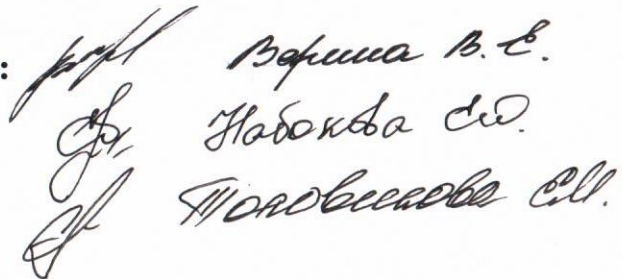 : Верина В. Е.
Набокова Е.Ю.
Половикова Е.М.